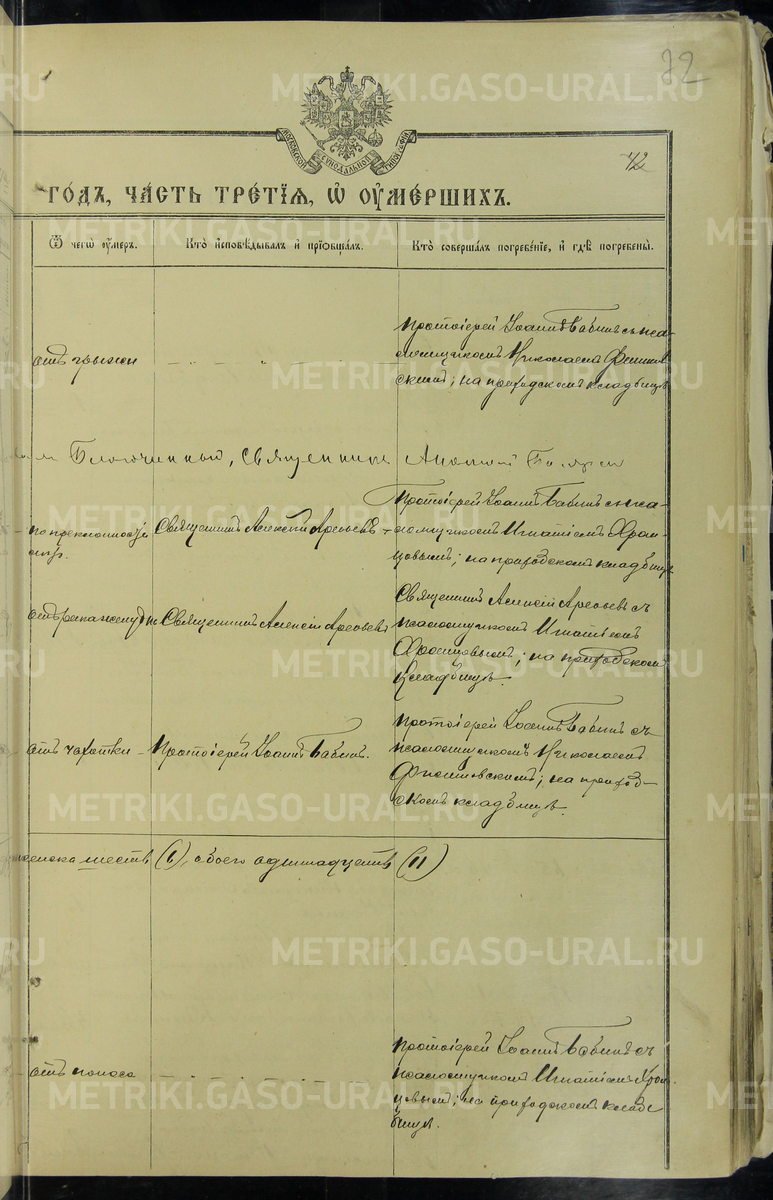 72
42
МОСКОВСКОЙ СѴНОДАЛЬНОЙ ТИПОГРАФІИ
ГО́ДЪ, ЧА́СТЬ ТРЕ́ТІѦ, Ѡ҆ ОУ҆МЕ́РШИХЪ.
Ѿ чегѡ̀ оу҆́меръ.
Кто̀ и҆сповѣ́дывалъ и҆ прїѡбща́лъ.
Кто̀ соверша́лъ погребе́нїе, и҆ гдѣ̀ погребены̀.
отъ грыжи
Протоіерей Іоаннъ Бабинъ съ пса-
ломщикомъ Николаемъ
скимъ; на приходскомъ кладбищѣ
Благочинный, Священникъ
по преклонности
Священникъ Алексій Арефьевъ
Протоіерей Іоаннъ Бабинъ съ пса-
ломщикомъ Игнатіемъ Хром-
цовымъ; на приходскомъ кладбищѣ
Священникъ Алексій Арефьевъ
Священникъ Алексій Арефьевъ съ
псаломщикомъ Игнатіемъ
Хромцовымъ; на приходскомъ
кладбищѣ.
отъ чахотки
Протоіерей Іоаннъ Бабинъ.
Протоіерей Іоаннъ Бабинъ съ
псаломщикомъ Николаемъ
на приход-
скомъ кладбищѣ.
женска шесть (6), обоего одинадцать (11)
отъ поноса
Протоіерей Іоаннъ Бабинъ съ
псаломщикомъ Игнатіемъ Хром-
цовымъ; на приходскомъ клад-
бищѣ.
METRIKI.GASO-URAL.RU